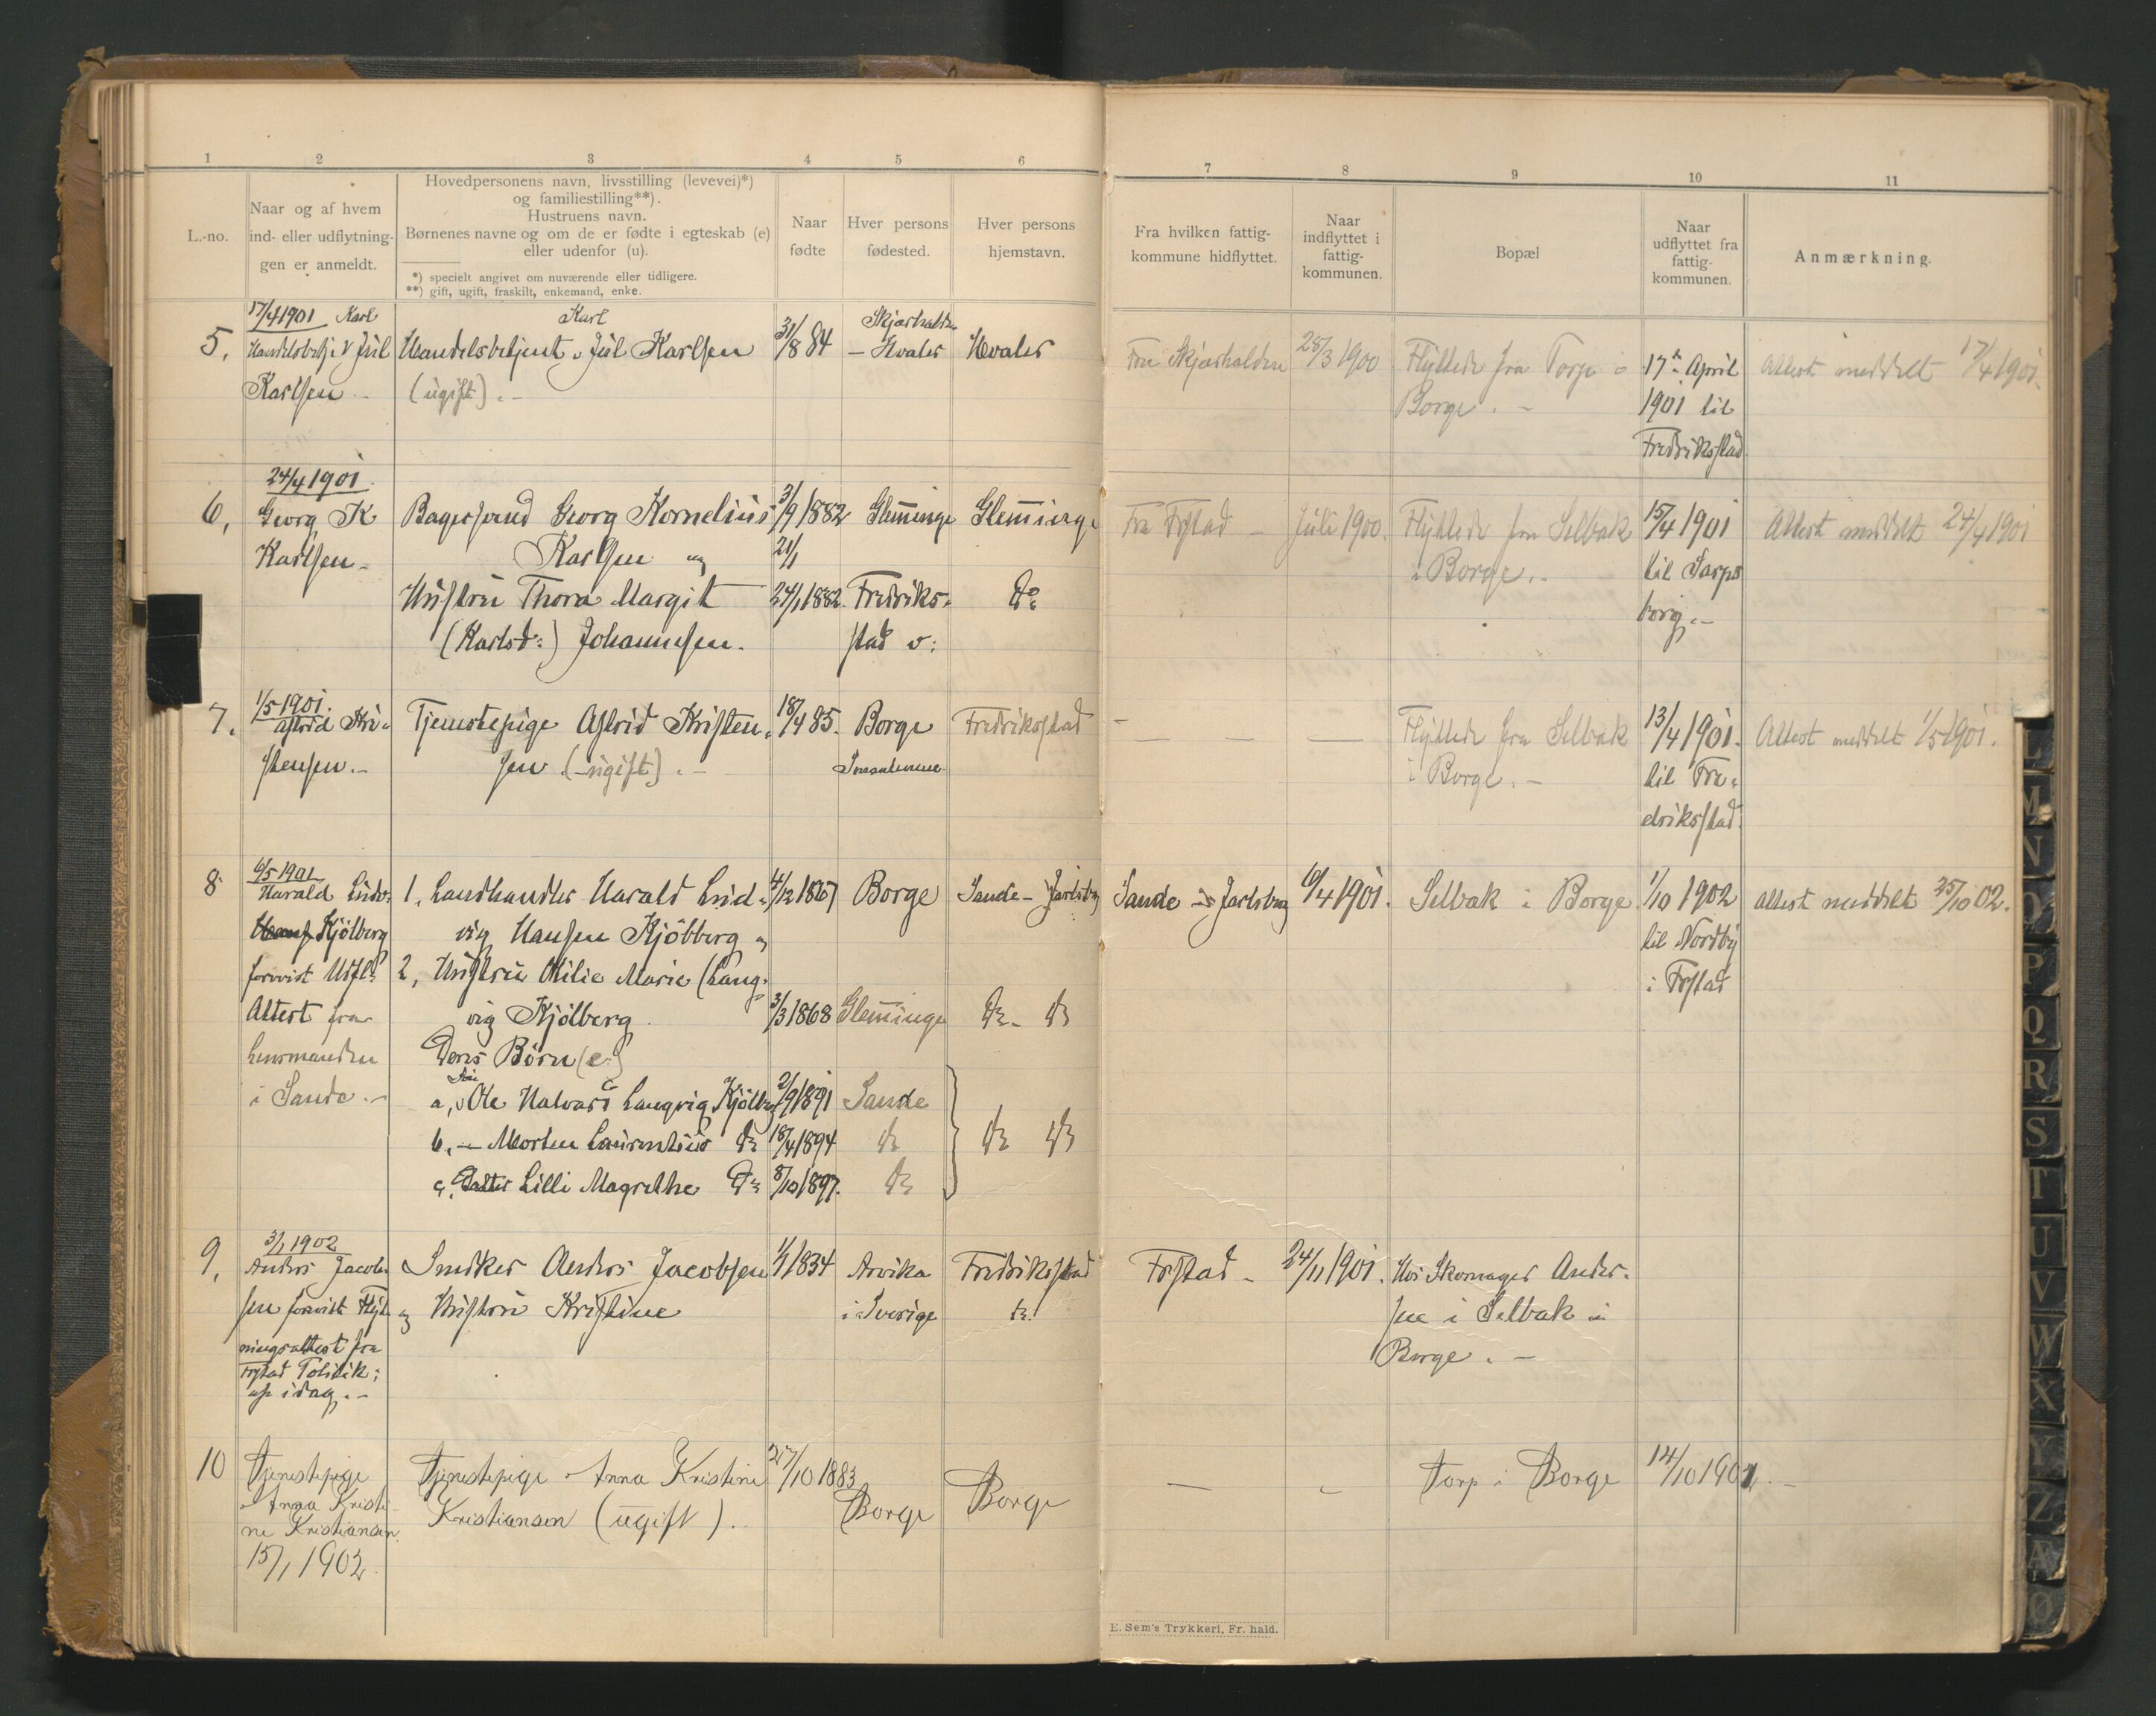 1 2 3 4 5 6 7 8 9 10 11
L.-no.
Naar og af hvem
ind- eller udflytnin-
gen er anmeldt.
Hovedpersonens navn, livsstilling (levevei)*)
og familiestilling**).
Hustruens navn.
Børnenes navne og om de er fødte i egteskab (e)
eller udenfor (u).
*) specielt angivet om nuværende eller tidligere.
**) gift, ugift, fraskilt, enkemand, enke.
Naar
fødte
Hver persons
fødested.
Hver persons
hjemstavn.
Fra hvilken fattig-
kommune hidflyttet.
Naar
indflyttet i
fattig-
kommunen.
Bopæl
Naar
udflyttet fra
fattig-
kommunen.
Anmærkning.
5,
17/4 1901 Karl
Handelsbetj. Jul
Karlsen.-
Karl
Handelsbetjent Jul Karlsen
(ugift).-
31/8 84
Skjærhalden
- Hvaler
Hvaler
Fra Skjærhalden
28/3 1900
Flyttede fra Torp i
Borge.-
17de April
1901 til
Fredriksstad
Attest meddelt 17/4 1901.
6,
24/4 1901
Georg K
Karlsen.
Bagersvend Georg Kornelius
Karlsen og
Hustru Thora Margit
(Karlsd:) Johannesen.
3/9 1882
21/1
24/1 1882.
Glemminge
Fredriks-
stad
Glemminge
Do
Fra Frstad -
Juli 1900.
Flyttede fra Selbak
i Borge.-
15/4 1901
til Sarps
borg.-
Attest meddelt 24/4 1901
7.
1/5 1901.
Astrid Kri-
stensen.-
Tjenestepige Astrid Kristen-
sen (-ugift).-
18/4 85.
Borge
Fredriksstad
-
- - -
Flyttede fra Selbak
i Borge.-
13/4 1901.
til Fre-
driksstad.
Attest meddelt 1/5 1901.
8
6/5 1901
Harald Ludv.
Hans Kjölberg
forevist Udfl:
Attest fra
Lensmanden
i Sande.-
1, Landhandler Harald Lud-
vig Hansen Kjölberg og
2, Hustru Otilie Marie (Lang-
vig Kjölberg
Deres Børn (e)
Søn
a, Ole Halvard Langvig Kjölberg
b, - Morten Laurentius Do
c, Datter Lilli Magrethe Do
4/12 1867
3/3 1868
2/9 1891
18/4 1894
8/10 1897.
Borge
Glemminge
Sande
do
do
Sande - Jarlsberg
do - do
do do
Sande - Jarlsberg
6/4 1901.
Selbak i Borge
1/10 1902
til Nordby
i Frstad
Attest meddelt 25/10 02.
9,
3/1 1902
Anders Jacob-
sen forevist Flyt-
ningsattest fra
Frstad Politik:
af idag.-
Snedker Anders Jacobsen
og Hustru Kristine
1/1 1834
Arvika
i Sverige
Fredriksstad
do
Frstad -
24/11 1901.
Hos Skomager Ander-
sen i Selbak i
Borge.-
10
Tjenestepige
Anna Kristi-
ne Kristiansen
15/1 1902
Tjenestepige Anna Kristine
Kristiansen (ugift).
27/10 1883
Borge
Borge
-
-
Torp i Borge
14/10 1901.-
E. Sem's Trykkeri, Fr. hald.
L
M
N
O
P
Q
R
S
T
U
V
W
X
Y
Z
Æ
Ø